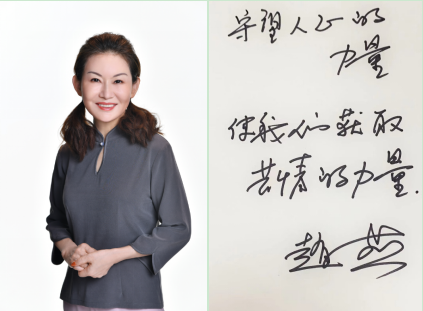 守望人心的
力量
使我们获取
共情的力量.
赵然